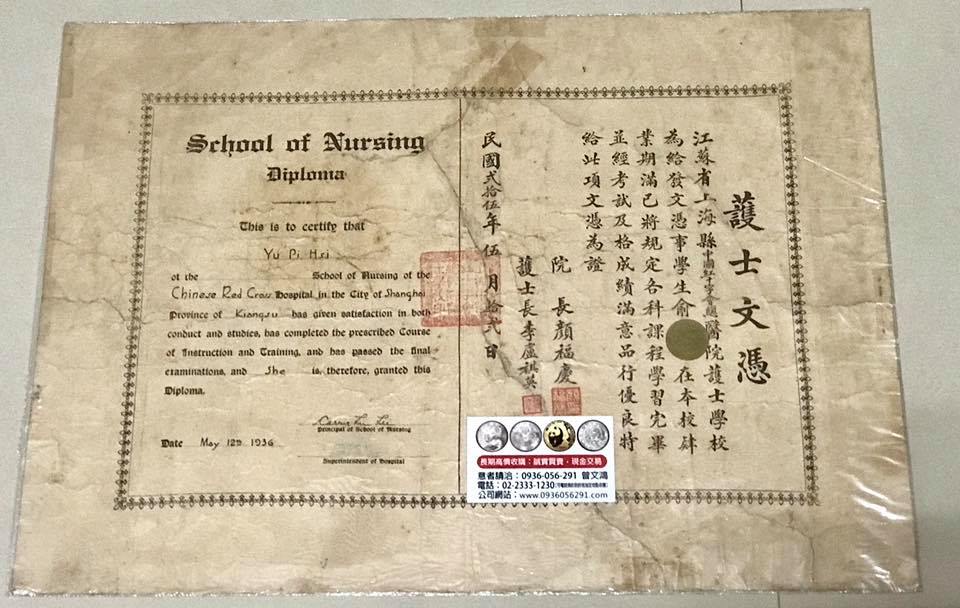 School of Nursing
Diploma
This is to certify that
Yu Pi Hsi
of the School of Nursing of the
Chinese Red Cross Hospital in the City of Shanghai
Province of Kiangsu has given satisfaction in both
conduct and studies, has completed the prescribed Course
of Instruction and Training, and has passed the final
examinations, and She is, therefore, granted this
Diploma.
Principal of School of Nursing
Date May 12th 1936
Superintendent of Hospital
護士文憑
江蘇省上海縣中國紅十字會醫院護士學校
為給發文憑事學生俞在本校肄
業期滿已將規定各科課程學習完畢
並經考試及格成績滿意品行優良特
給此項文憑為證
院長顏福慶
護士長李盧祺英
民國弍拾伍年伍月拾弍日
長期高價收購:誠實買賣・現金交易
意者請洽:0936-056-291 曾文鴻
電話:02-2333-1230
公司網站:www.0936056291.com